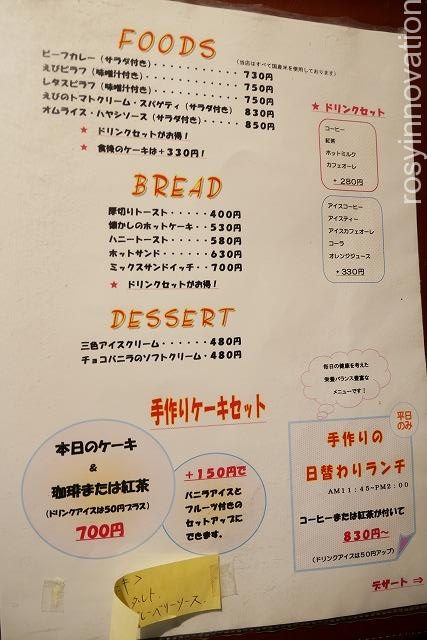 FOODS
(当店はすべて国産米を使用しております)
ビーフカレー (サラダ付き)・・・・・・・・・・730円
えびピラフ (味噌汁付き)・・・・・・・・・・750円
レタスピラフ (味噌汁付き)・・・・・・・・・750円
えびのトマトクリーム・スパゲティ (サラダ付き) 830円
オムライス・ハヤシソース (サラダ付き)・・・・850円
★ ドリンクセットがお得！
★ 食後のケーキは＋330円！
★ ドリンクセット
コーヒー
紅茶
ホットミルク
カフェオーレ
+ 280円
アイスコーヒー
アイスティー
アイスカフェオーレ
コーラ
オレンジジュース
+ 330円
BREAD
厚切りトースト・・・・・400円
懐かしのホットケーキ・・530円
ハニートースト・・・・・580円
ホットサンド・・・・・・630円
ミックスサンドイッチ・・700円
★ ドリンクセットがお得！
DESSERT
三色アイスクリーム・・・・・・480円
チョコバニラのソフトクリーム・480円
毎日の健康を考えた
栄養バランス豊富な
メニューです！
手作りケーキセット
本日のケーキ
&
珈琲または紅茶
(ドリンクアイスは50円プラス)
700円
+150円で
バニラアイスと
フルーツ付きの
セットアップに
できます。
平日
のみ
手作りの
日替わりランチ
AM11:45~PM2:00
コーヒーまたは紅茶が付いて
830円~
(ドリンクアイスは50円アップ)
デザート ⇒
ベリーソース.
rosyinnovation